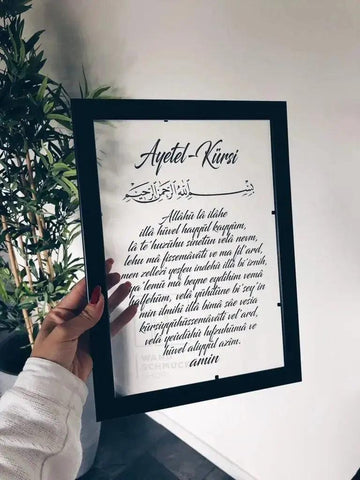 Ayetel-Kürsi
بسم الله الرحمن الرحيم
Allâhü lâ ilâhe
illâ hüvel hayyül kayyüm,
lâ te'huzühu sinetün velâ nevm,
lehu mâ fissemâvâti ve ma fil'ard,
men zellezî yeşfeu indehû illâ bi'iznih,
ya'lemü mâ beyne eydihim vemâ
halfehüm, velâ yühîtûne bi'şey'in
min ilmihî illâ bimâ şâe vesia
kürsiyyühüssemâvâti vel'ard,
velâ yeûdühû hıfzuhümâ ve
hüvel aliyyül azim.
amin